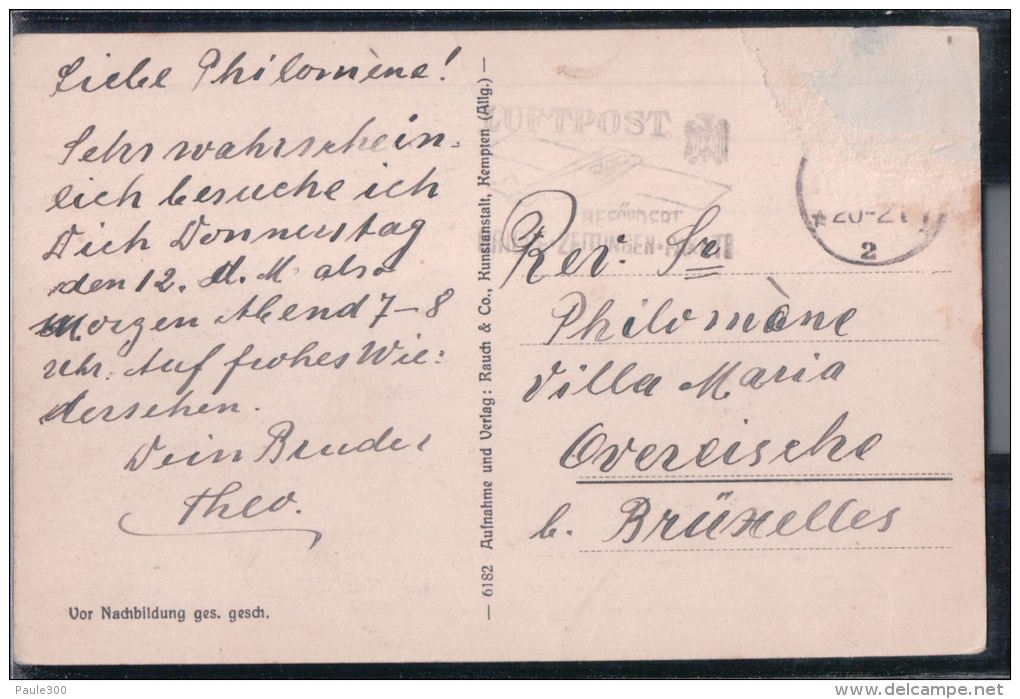 Liebe Philomène!
Sehr wahrschein-
lich besuche ich
Dich Donnerstag
den 12. d. M. also
Morgen Abend 7–8
Uhr. Auf frohes Wie:
dersehen.
Dein Bruder
Theo.
Vor Nachbildung ges. gesch.
— 6182 Aufnahme und Verlag: Rauch & Co., Kunstanstalt, Kempten (Allg.) —
LUFTPOST
BEFÖRDERT
ZEITUNGEN
20-21
2
Rev: Sr
Philomène
Villa Maria
Overeische
b. Brüxelles
Paule300
delcampe.net